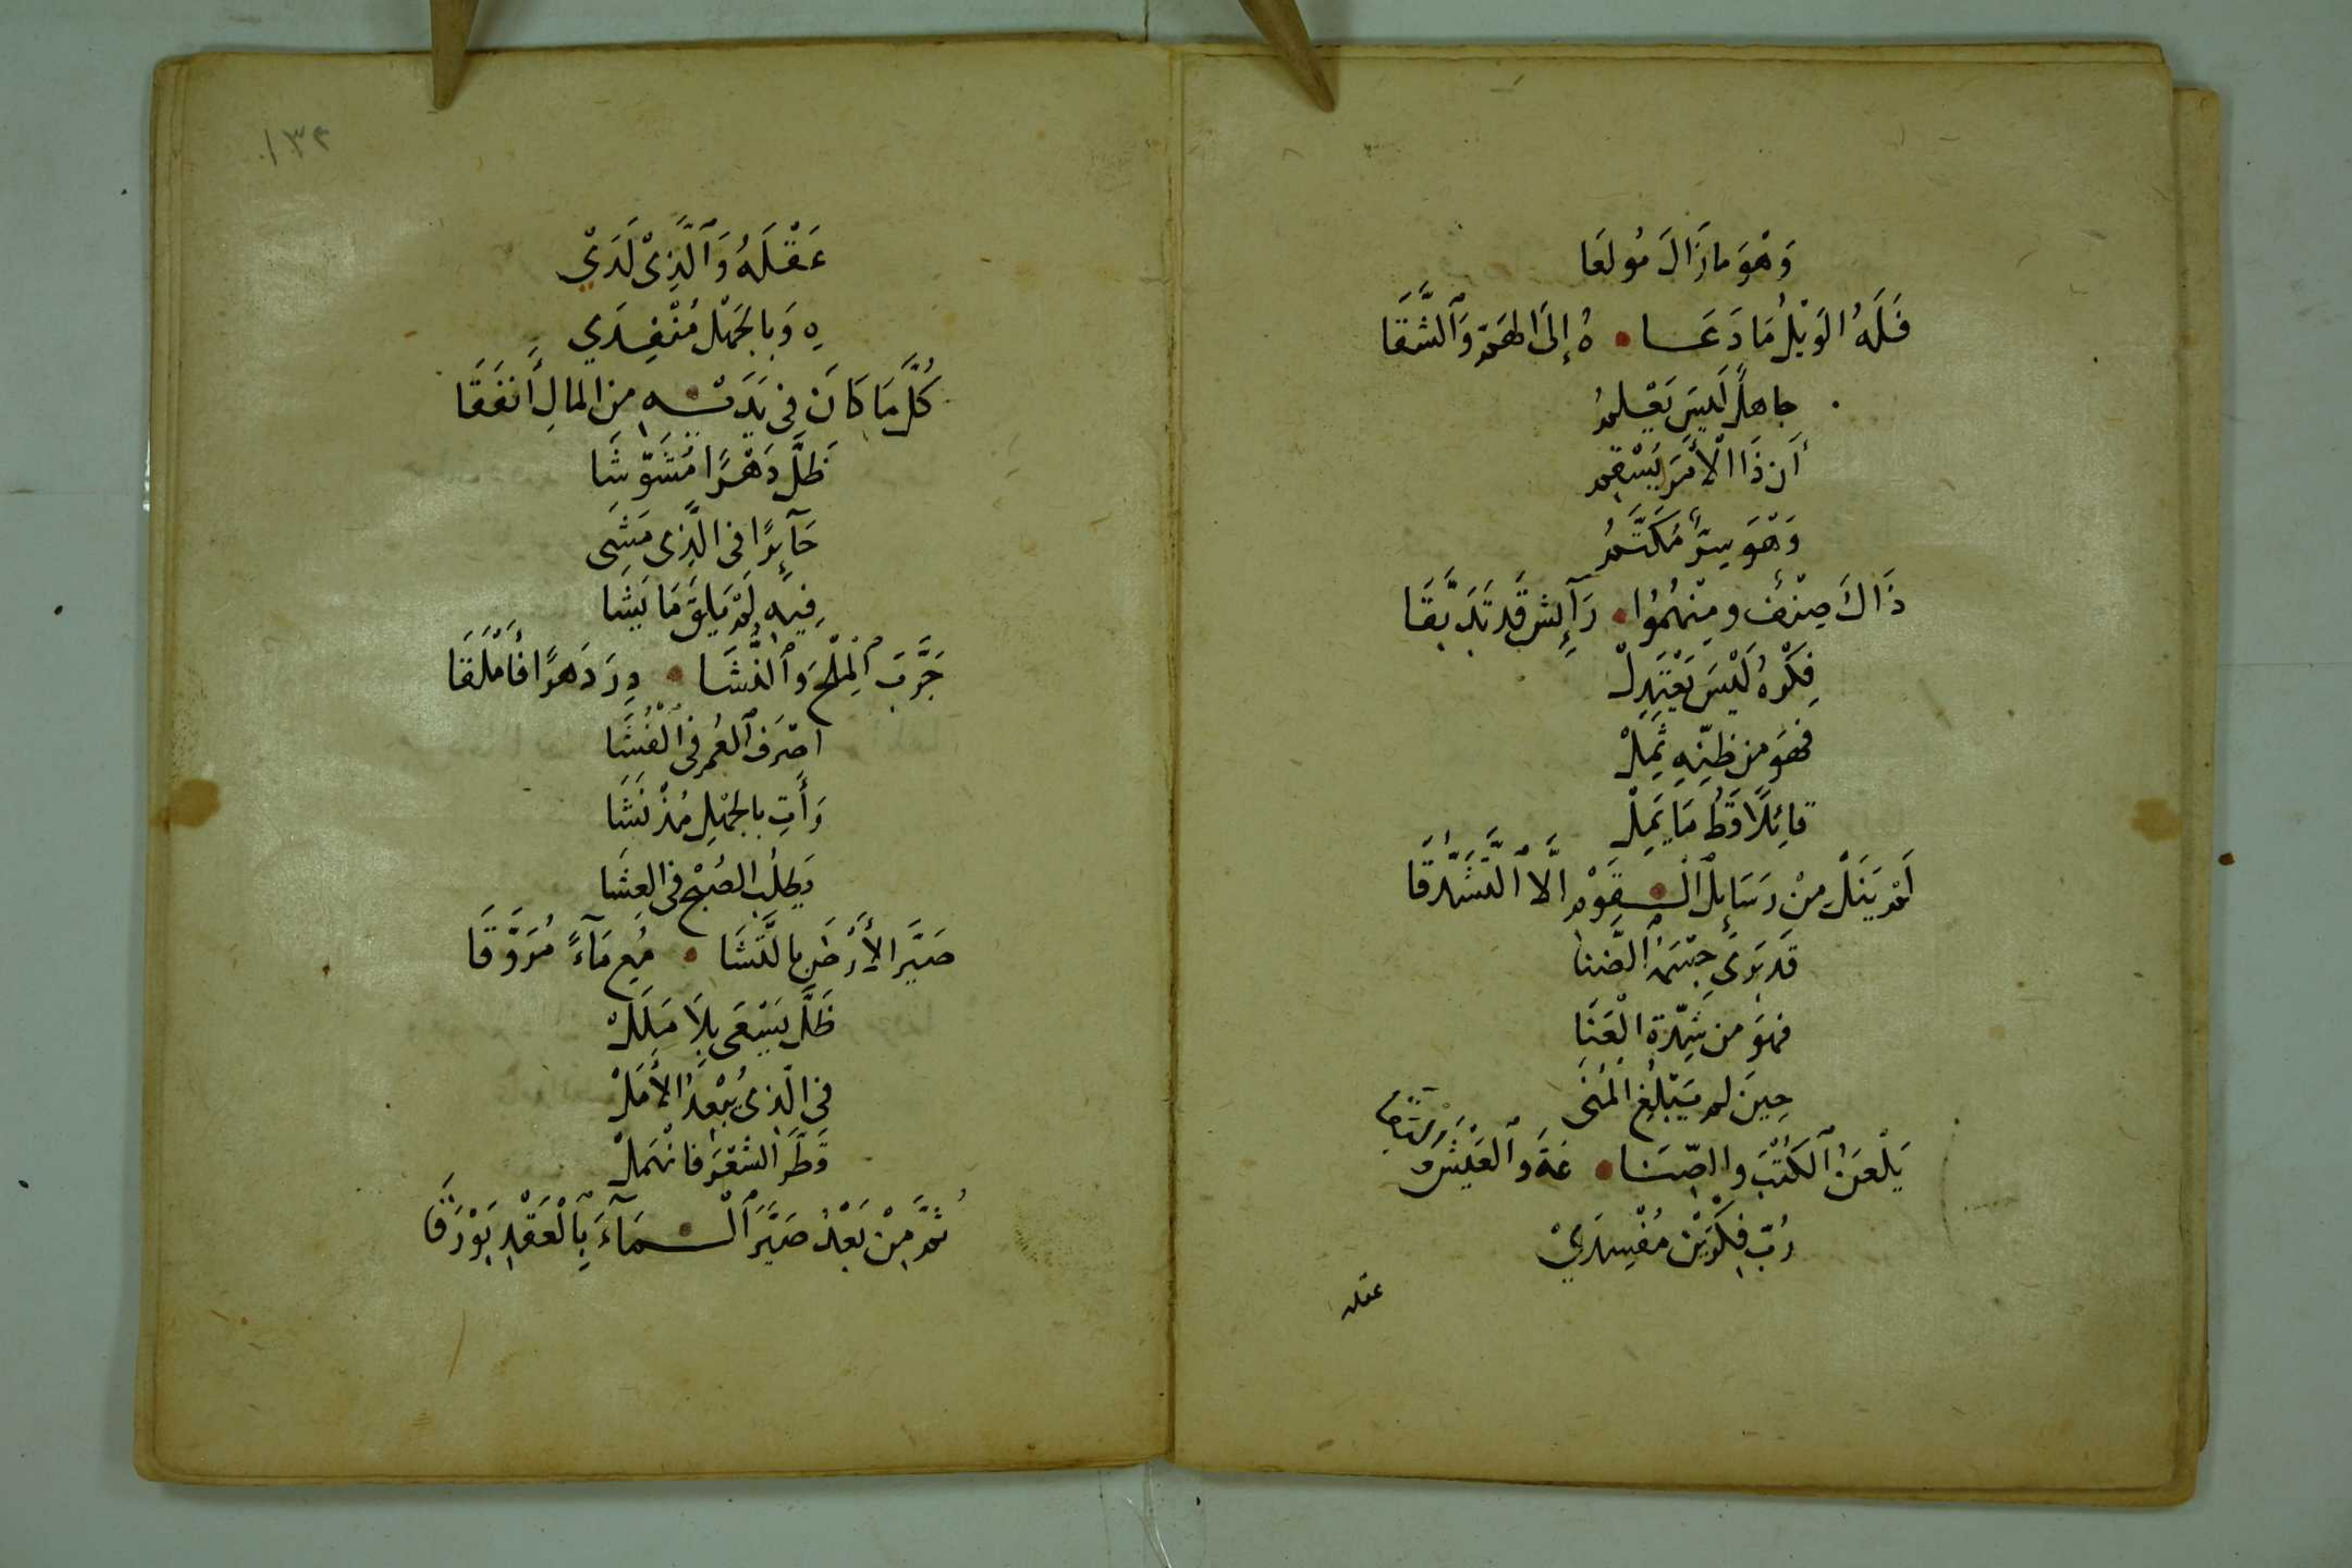 وَهْوَ مَا زَالَ مُولَعَا
فَلَهُ الوَيْلُ مَا دَعَا • هُ إِلَى الهَمِّ وَالشَّقَا
جاهلٌ لَيسَ يَعْلمُ
أَن ذَا الْأَمْرَ يُسْقِم
وَهْوَ سِرٌّ مُكَتَّمُ
ذَاكَ صِنْفٌ ومِنْهُمُوا • رَآئِشٌ قَد تَدَبَّقَا
فِكْرُهُ لَيْسَ يَعْتَدِلْ
فهوَ من ظَنِّهِ ثَمِلْ
قائِلًا قَطُّ مَا يَمِلْ
لَمْ يَنَلْ مِنْ رَسَائِلِ الْـ • ـقَوْمِ الَّا التَّشَدُّقَا
قَد بَرَى جِسْمَهُ الضَّنا
فهوَ من شِدَّةِ الْعَنَا
حِينَ لم يَبْلُغِ الْمُنَى
يَلْعَنُ الْكُتْبَ والصِّنَا • عَةَ وَالْعَيْشَ
رُبَّ فِكْرَيْنِ مُفْسِدَيْ
عقله
١٣٢
عَقْلَهُ وَالَّذِىْ لَدَيْ
هِ وَبِالجَهْلِ مُنْفِدَيْ
كُلَّ مَا كَانَ فِى يَدَيْـ • ـهِ مِنَ المَالِ أَنفَقَا
ظَلَّ دَهْرًا مُشَوَّشَا
حَآئِرًا فى الَّذِى مَشَى
فِيهِ لَمْ يَلقَ مَا يَشَا
جَرَّبَ الْمِلْحَ وَالنُّشَا • دِرَ دَهرًا فَأَمْلَقَا
اصْرَف الْعُمرَ فِى الْفُشَا
وَأَتى بالجَهْلِ مُذْ نَشَا
يَطلُب الصُبْحَ فى العِشَا
صَيَّرَ الأَرْضَ بِالنَّشَا • مُعِ مَآءً مُرَوَّقَا
ظَلَّ يَسْعَى بِلَا مَلَلْ
فى الَّذِى يُبْعِدُ الأَمَلْ
قَطَّرَ الشَّعْرَ فانْهَمَلْ
ثُمَّ مِنْ بَعْدُ صَيَّرَ الْـ • ـمَآءَ بِالْعَقْدِ بَوْرَقَا